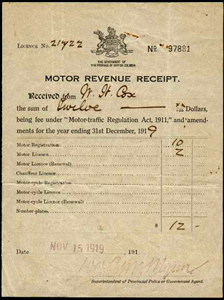 THE GOVERNMENT OF
THE PROVINCE OF BRITISH COLUMBIA
LICENCE No. 21922 No. 97881
MOTOR REVENUE RECEIPT.
Received from W. H. Cox
the sum of twelve Dollars,
being fee under "Motor-traffic Regulation Act, 1911," and amend-
ments for the year ending 31st December, 1919
Motor Registration 10
Motor Licence 2
Motor Licence (Renewal)
Chauffeur Licence
Motor-cycle Registration
Motor-cycle Licence
Motor-cycle Licence (Renewal)
Number plates
$ 12 -
Date NOV 15 1919 191
Superintendent of Provincial Police or Government Agent.